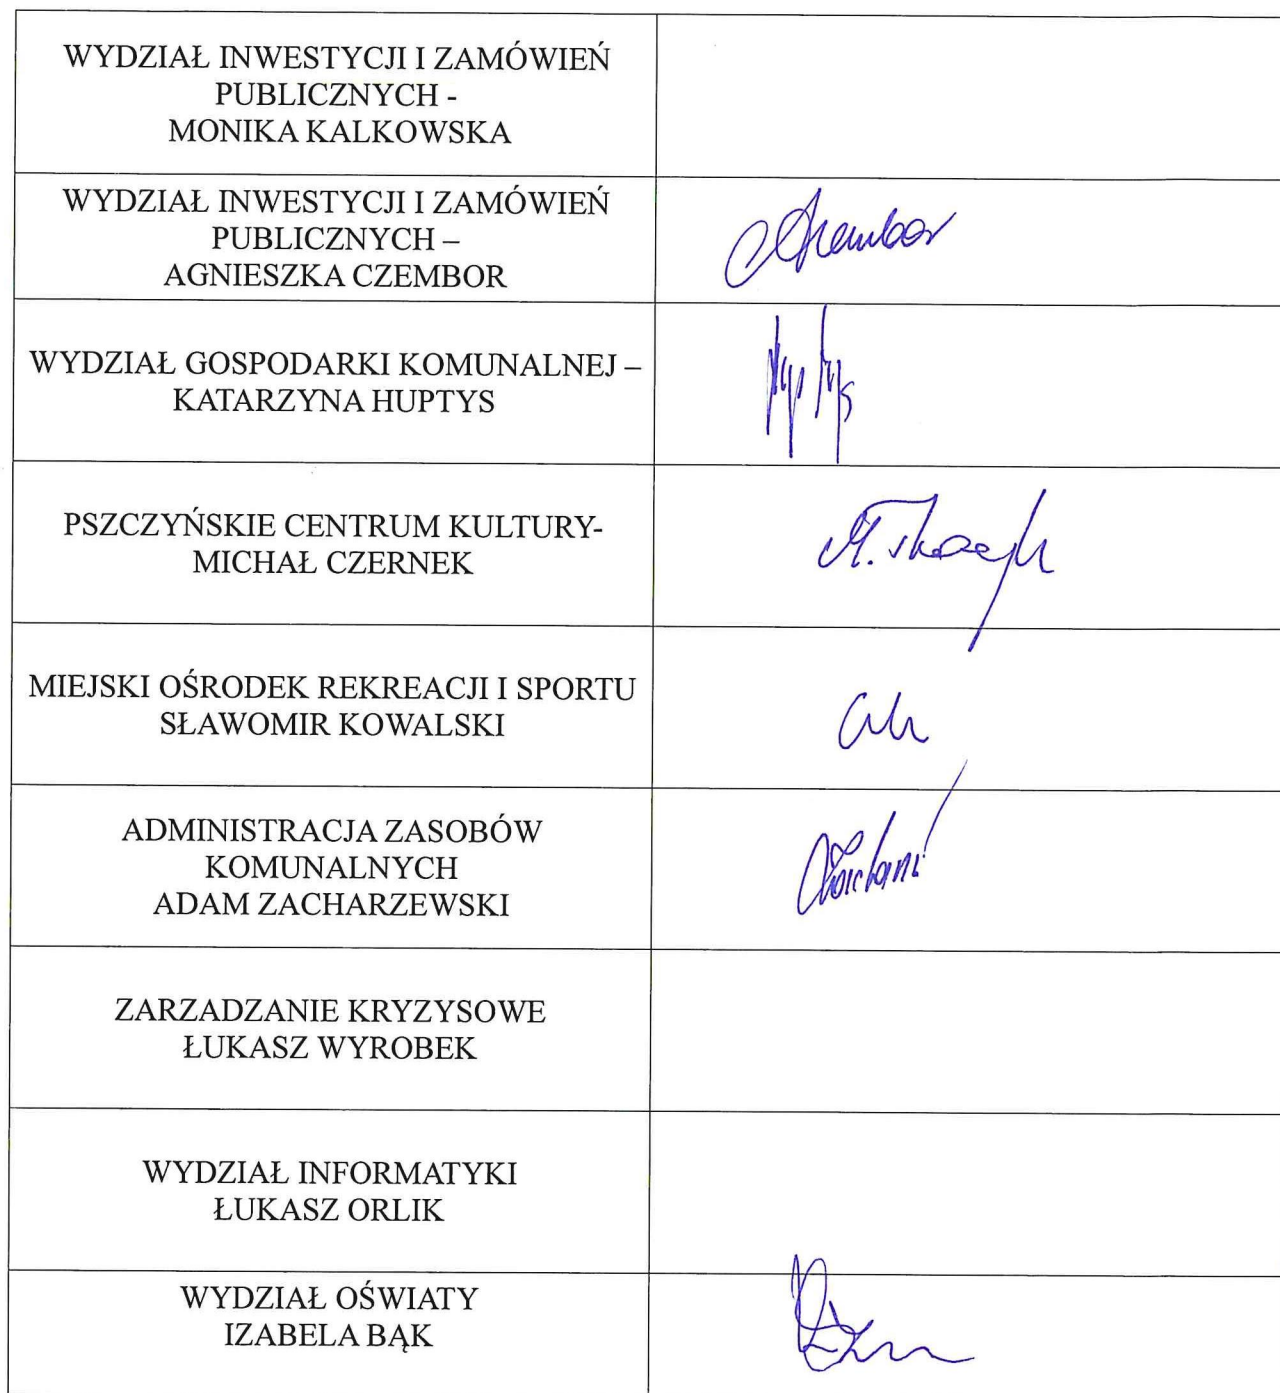 WYDZIAŁ INWESTYCJI I ZAMÓWIEŃ
PUBLICZNYCH -
MONIKA KALKOWSKA
WYDZIAŁ INWESTYCJI I ZAMÓWIEŃ
PUBLICZNYCH –
AGNIESZKA CZEMBOR
WYDZIAŁ GOSPODARKI KOMUNALNEJ –
KATARZYNA HUPTYS
PSZCZYŃSKIE CENTRUM KULTURY-
MICHAŁ CZERNEK
MIEJSKI OŚRODEK REKREACJI I SPORTU
SŁAWOMIR KOWALSKI
ADMINISTRACJA ZASOBÓW
KOMUNALNYCH
ADAM ZACHARZEWSKI
ZARZADZANIE KRYZYSOWE
ŁUKASZ WYROBEK
WYDZIAŁ INFORMATYKI
ŁUKASZ ORLIK
WYDZIAŁ OŚWIATY
IZABELA BĄK